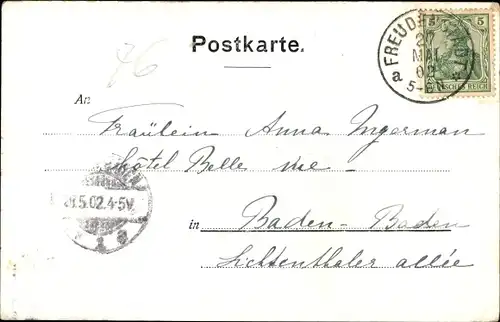 76
Postkarte.
5 5
DEUTSCHES REICH
FREUDENSTADT
27
MAI
02
a
5-6N
An
Fräulein Anna Ingerman
Hôtel Belle vue –
28.5.02.4-5V.
1 a
in Baden-Baden
Lichtenthaler allée